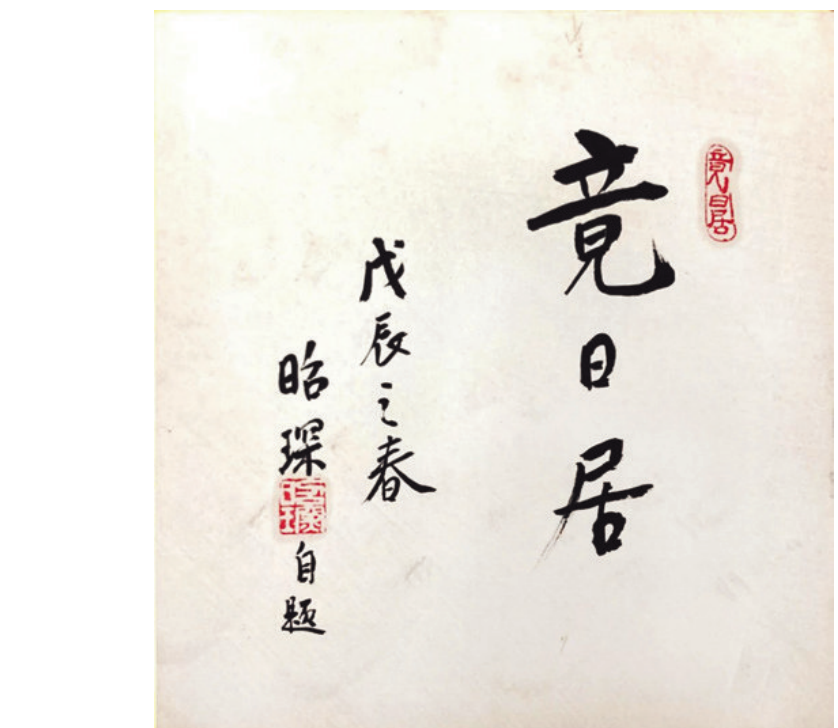 竟日居
竟日居
戊辰之春
昭琛
自题